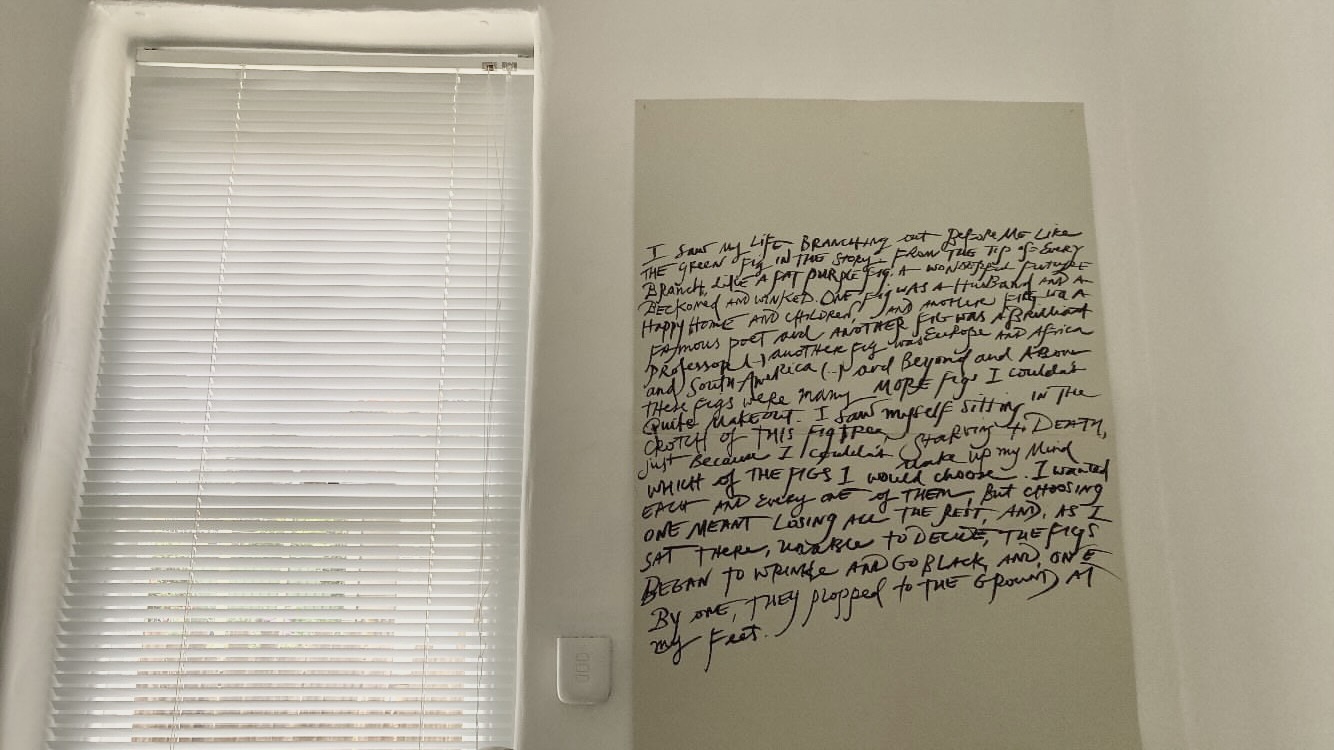 I Saw my Life BRANCHING out Before Me Like
THE green Fig IN THE STORY. FROM THE TIP OF EVERY
BRANCH, LIKE A FAT PURPLE Fig. A WONDERFUL FUTURE
BECKONED AND WINKED. ONE Fig WAS A HUSBAND AND A
HAPPY HOME AND CHILDREN, AND ANOTHER FIG WA A
FAMOUS POET and ANOTHER FIG WAS A Brilliant
PROFESSOR (..) another Fig was Europe AND Africa
and South America (...) and Beyond and Above
these Figs were many MORE Figs I couldn't
Quite MAKE OUT. I Saw myself Sitting IN THE
CROTCH OF THIS Fig TREE, STARVING to DEATH,
just Because I couldn't make up my Mind
WHICH of THE FIGS I would choose. I wanted
EACH AND Every one of THEM, But CHOOSING
ONE MEANT LOSING ALL THE REST, AND, AS I
SAT THERE, UNABLE TO DECIDE, THE FIGS
BEGAN TO WRINKLE AND GO BLACK, AND, ONE
By ONE, THEY plopped to THE GROUND AT
my Feet.